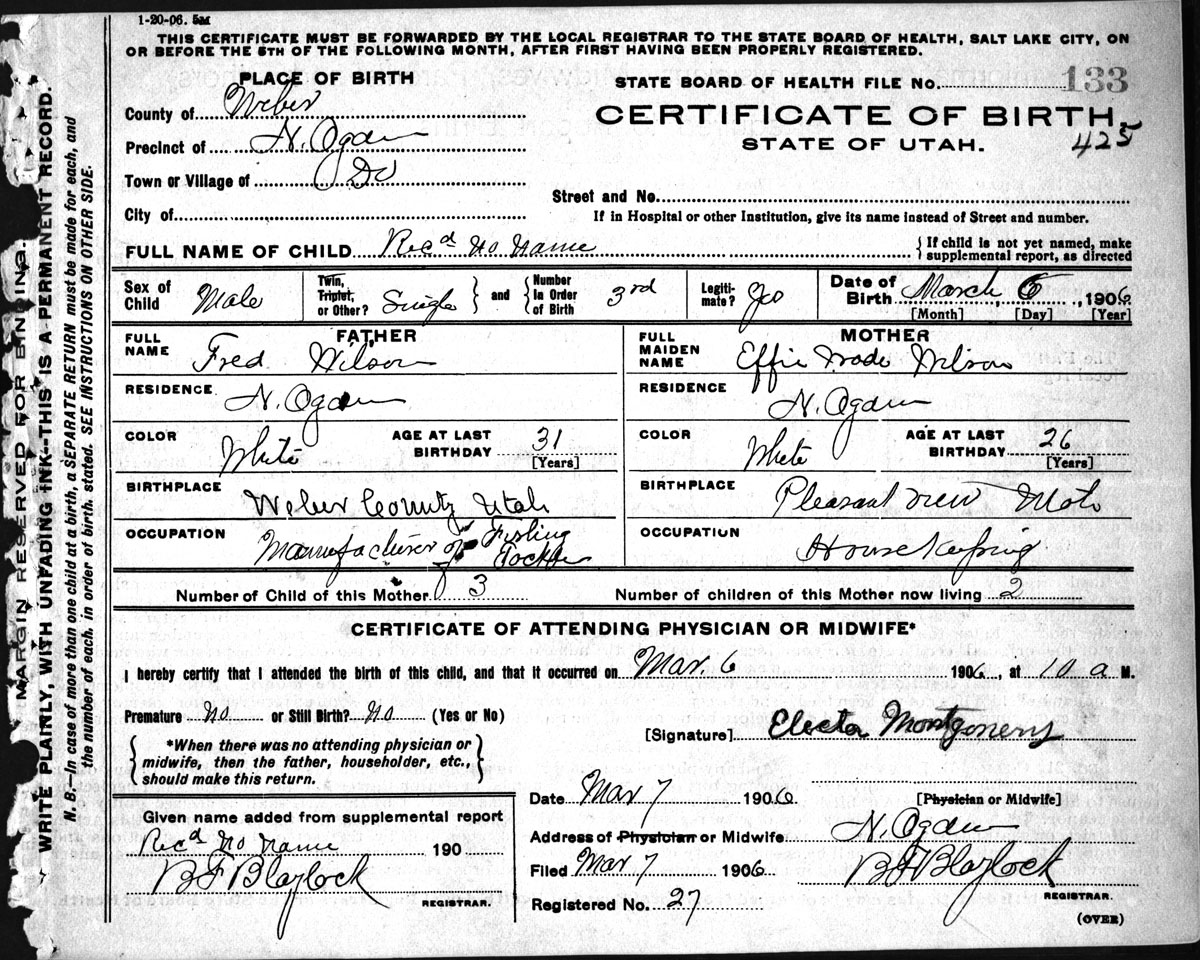 1-20-06. 5M
THIS CERTIFICATE MUST BE FORWARDED BY THE LOCAL REGISTRAR TO THE STATE BOARD OF HEALTH, SALT LAKE CITY, ON
OR BEFORE THE 5TH OF THE FOLLOWING MONTH, AFTER FIRST HAVING BEEN PROPERLY REGISTERED.
MARGIN RESERVED FOR BINDING.
WRITE PLAINLY, WITH UNFADING INK—THIS IS A PERMANENT RECORD.
N. B.—In case of more than one child at a birth, a SEPARATE RETURN must be made for each, and
the number of each, in order of birth, stated. SEE INSTRUCTIONS ON OTHER SIDE.
PLACE OF BIRTH
County of Weber
Precinct of N. Ogden
Town or Village of Do
City of
STATE BOARD OF HEALTH FILE NO. 133
CERTIFICATE OF BIRTH
425
STATE OF UTAH.
Street and No.
If in Hospital or other Institution, give its name instead of Street and number.
FULL NAME OF CHILD Rec'd No Name
If child is not yet named, make
supplemental report, as directed
Sex of Child Male
Twin, Triplet, or Other? Single
and Number in Order of Birth 3rd
Legitimate? Yes
Date of Birth March 6, 1906
[Month] [Day] [Year]
FATHER
FULL NAME Fred Wilson
RESIDENCE N. Ogden
COLOR White
AGE AT LAST BIRTHDAY 31
[Years]
BIRTHPLACE Weber County Utah
OCCUPATION Manufacturer of Fishing
MOTHER
FULL MAIDEN NAME Effie Wade Wilson
RESIDENCE N. Ogden
COLOR White
AGE AT LAST BIRTHDAY 26
[Years]
BIRTHPLACE Pleasant View Utah
OCCUPATION Housekeeping
Number of Child of this Mother 3
Number of children of this Mother now living 2
CERTIFICATE OF ATTENDING PHYSICIAN OR MIDWIFE*
I hereby certify that I attended the birth of this child, and that it occurred on Mar. 6 1906, at 10 a M.
Premature No or Still Birth? No (Yes or No)
*When there was no attending physician or
midwife, then the father, householder, etc.,
should make this return.
[Signature] Electa Montgomery
Date Mar 7 1906
[Physician or Midwife]
Address of Physician or Midwife N. Ogden
Filed Mar 7 1906 B F Blaylock
REGISTRAR.
Registered No. 27
(OVER)
Given name added from supplemental report
Rec'd No Name 190
B F Blaylock
REGISTRAR.